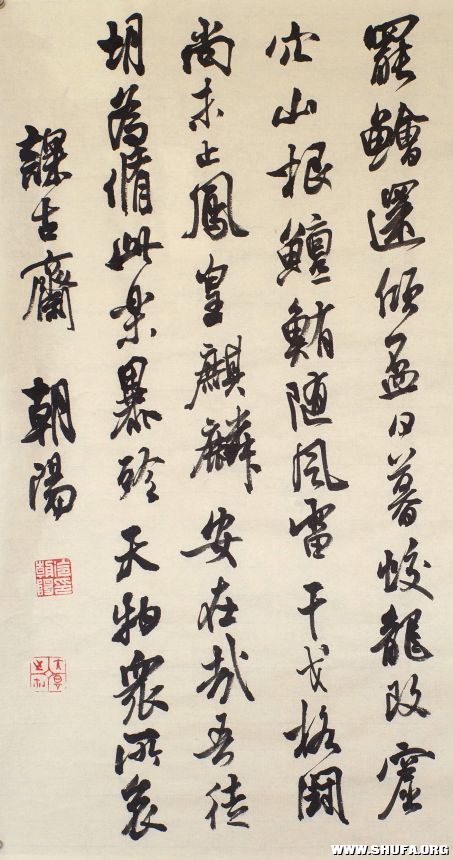 罷鱠還傾盃日暮蛟龍改窟
穴山根鱣鮪随風雷干戈格鬭
尚未止鳳皇麒麟安在哉吾徒
胡為脩此楽暴殄天物衆所哀
課古齋 朝陽
WWW.SHUFA.ORG